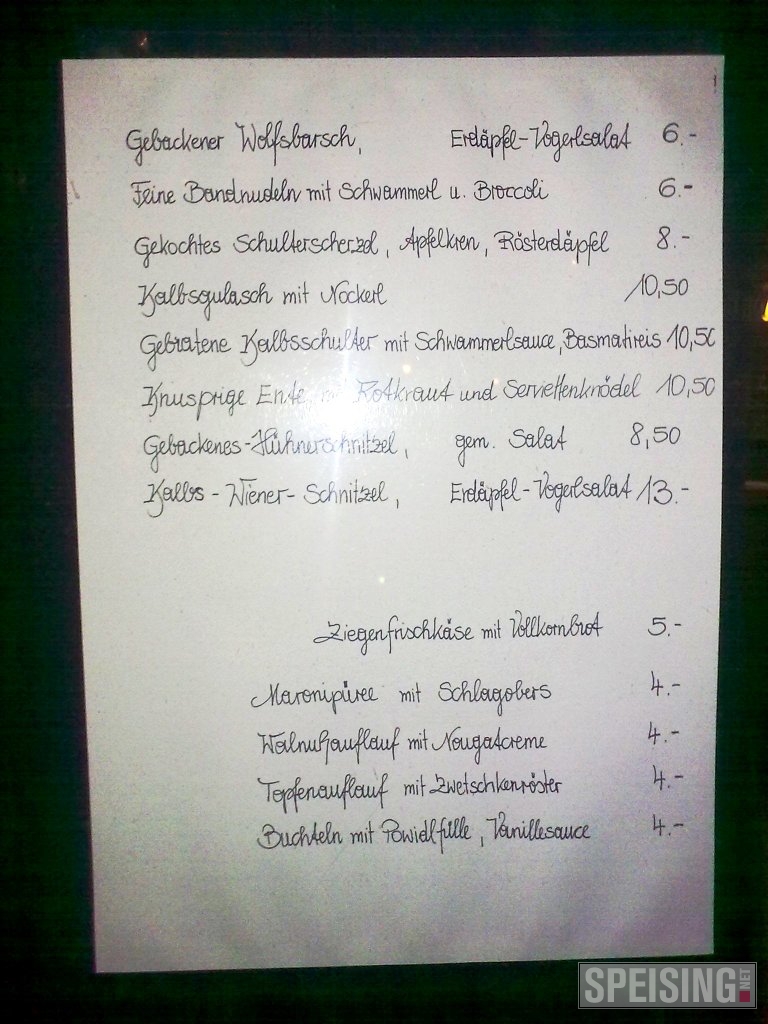 Gebackener Wolfsbarsch, Erdäpfel-Vogerlsalat 6.-
Feine Bandnudeln mit Schwammerl u. Broccoli 6.-
Gekochtes Schulterscherzel, Apfelkren, Rösterdäpfel 8.-
Kalbsgulasch mit Nockerl 10,50
Gebratene Kalbsschulter mit Schwammerlsauce, Basmatireis 10,50
Knusprige Ente Rotkraut und Serviettenknödel 10,50
Gebackenes-Hühnerschnitzel, gem. Salat 8,50
Kalbs-Wiener-Schnitzel, Erdäpfel-Vogerlsalat 13.-
Ziegenfrischkäse mit Vollkornbrot 5.-
Maronipüree mit Schlagobers 4.-
Walnußauflauf mit Nougatcreme 4.-
Topfenauflauf mit Zwetschkenröster 4.-
Buchteln mit Powidlfülle, Vanillesauce 4.-
SPEISING.NET